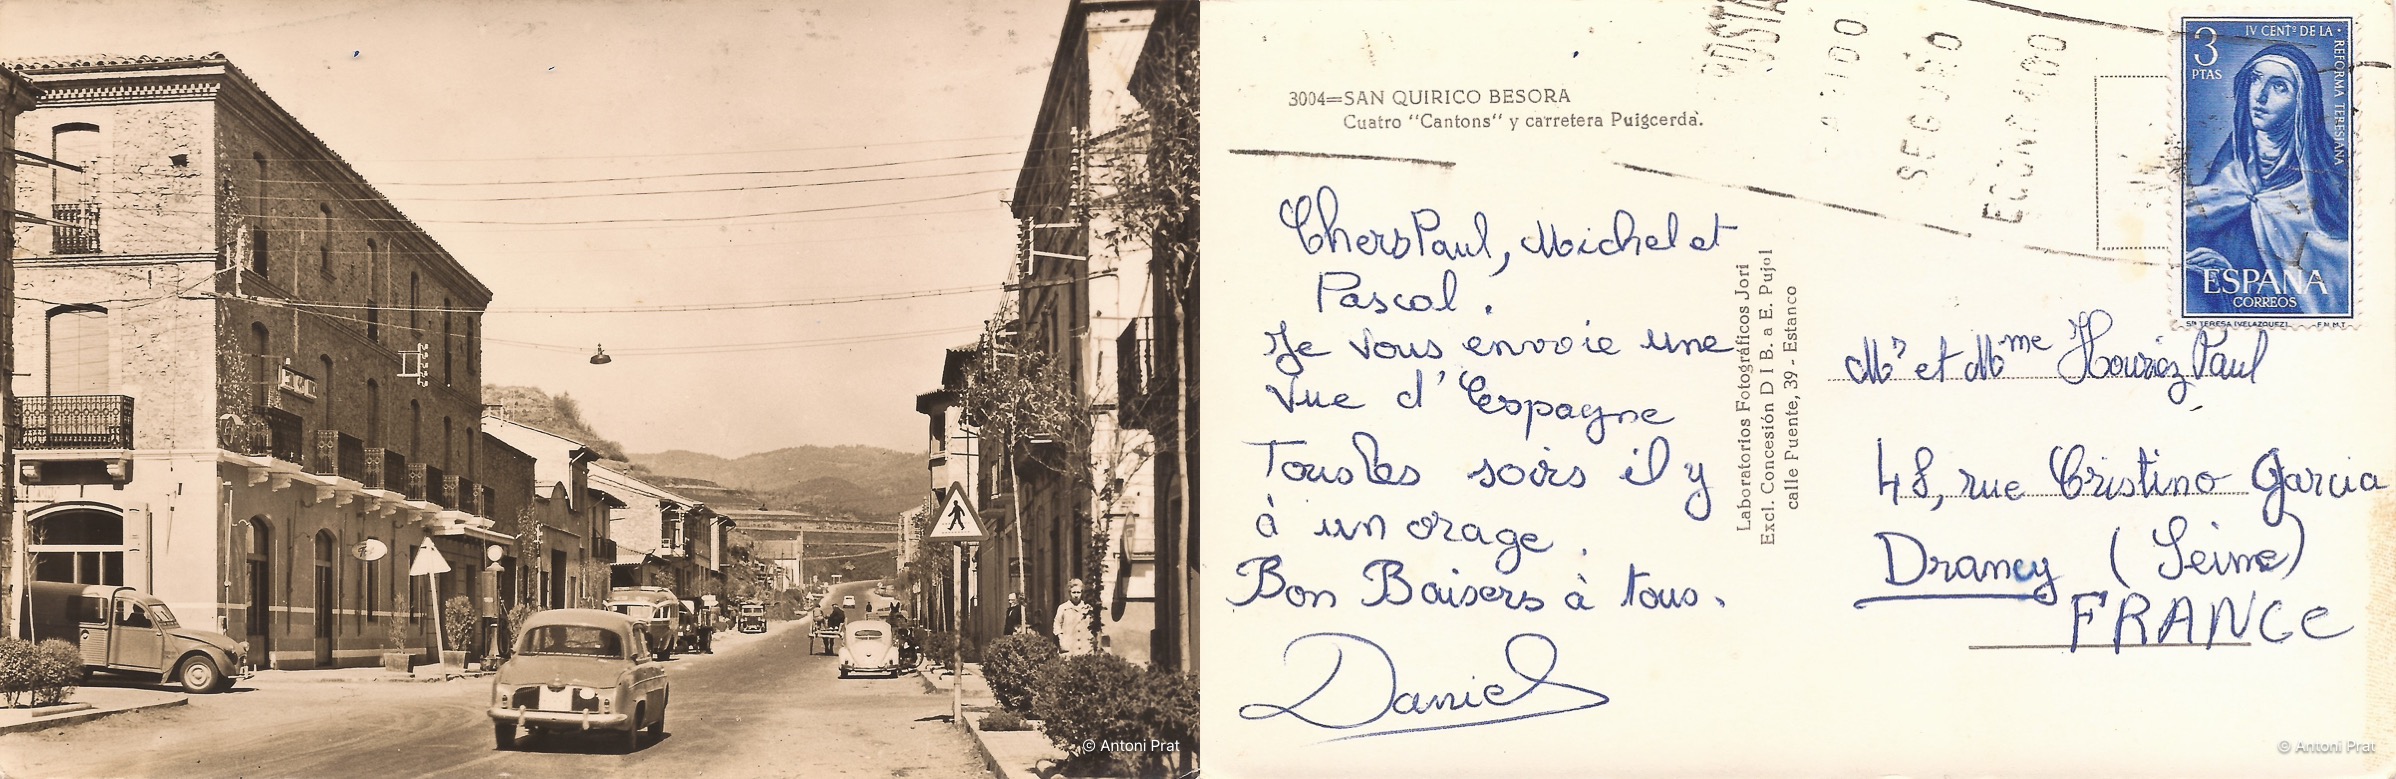 © Antoni Prat
3004=SAN QUIRICO BESORA
Cuatro "Cantons" y carretera Puigcerdà.
Chers Paul, Michel et
Pascal.
Je vous envoie une
vue d'Espagne
Tous les soirs il y
à un orage.
Bon Baisers à tous.
Daniel
Laboratorios Fotográficos Jori
Excl. Concesión D I B. a E. Pujol
calle Puente, 39 - Estanco
3
PTAS
IV CENTº DE LA
REFORMA TERESIANA
ESPAÑA
CORREOS
STA TERESA (VELAZQUEZ) F.N.M.T.
Mr et Mme Paul
48, rue Cristino Garcia
Drancy (Seine)
FRANCE
© Antoni Prat